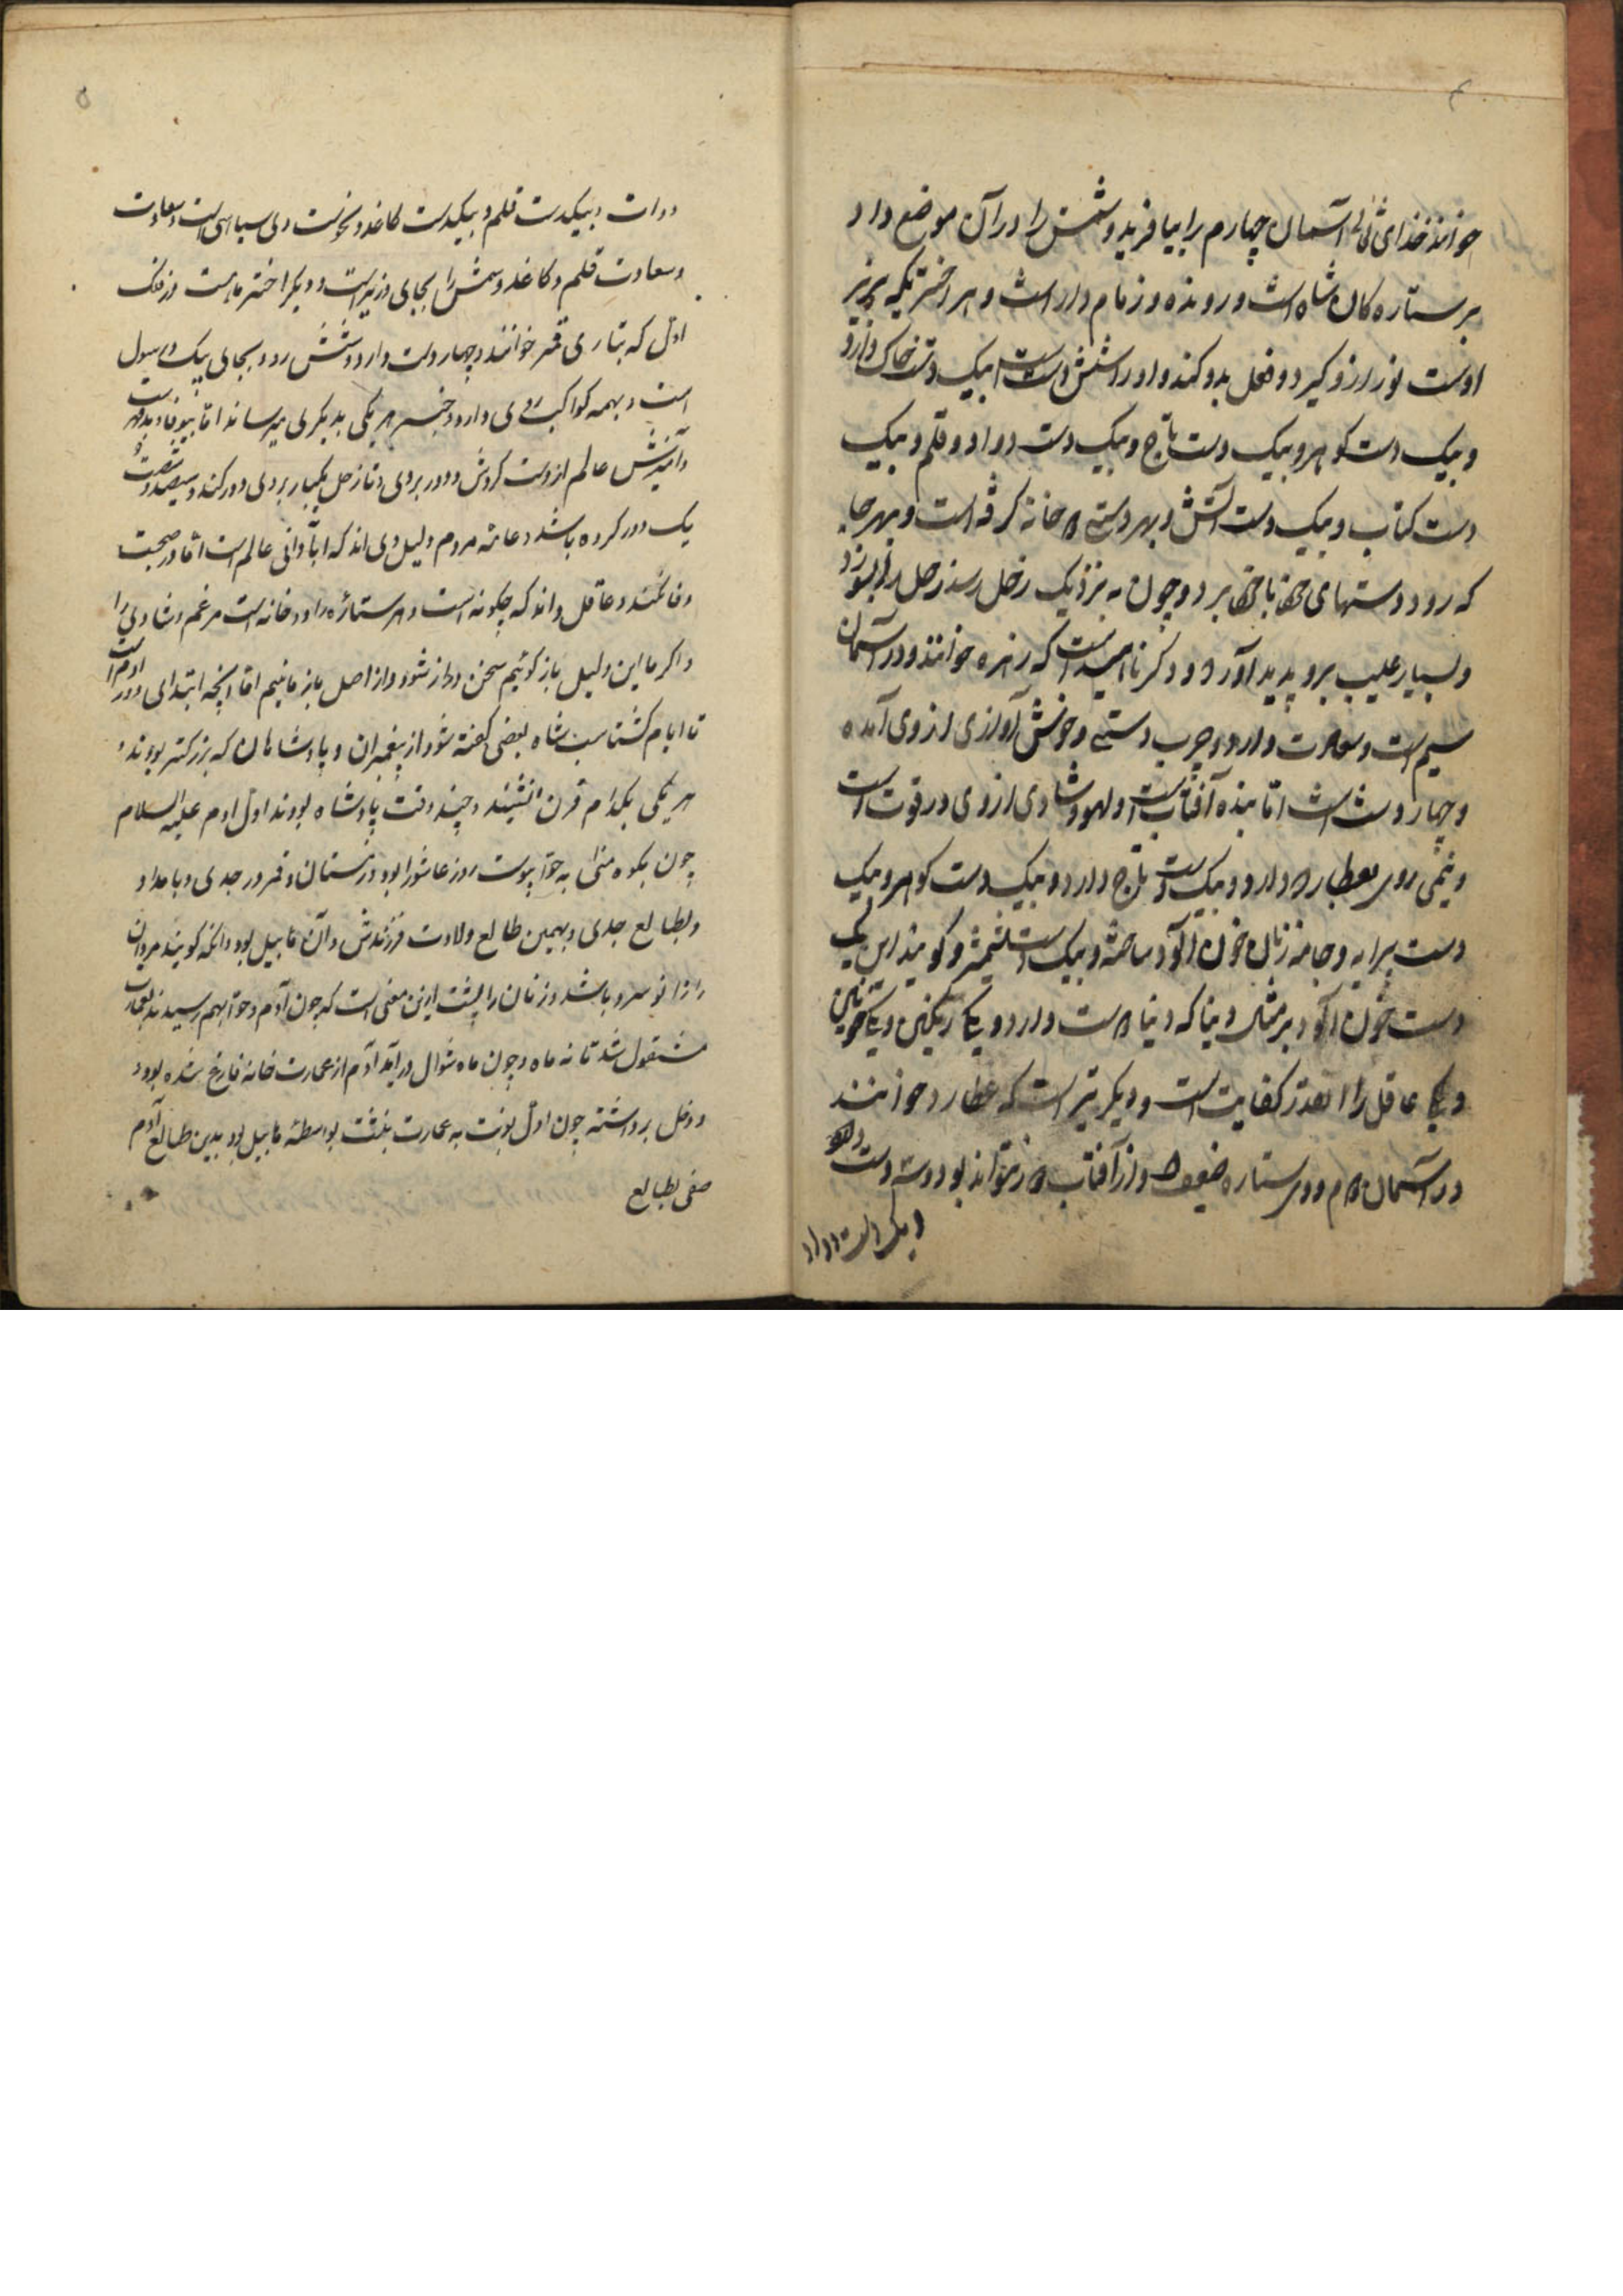 ۴
خوانند خدای تعالی آسمان چهارم را بیافرید و شمس را در آن موضع داد
بر ستاره کان شاه است و رونده و زمام دار است و هر اختر یکه بزیر
اوست نور ازو گیرد و فعل بدو کند و او را شش دست است بیک دست خاک دارد
و بیک دست کوهر و بیک دست تاج و بیک دست دوات و قلم و بیک
دست کتاب و بیک دست آتش و بهر دستی خانه گرفته است و بهر جا
که رود دستهای خود با خود برد و چون به نزدیک زحل رسد زحل
و بسیار عیب برو پدید آورد و دیگر ناهید است که زهره خوانند و در آسمان
سیم است و سعادت دارد و چرب دستی و خوش آوازی از وی آمده
و چهار دست است اما بنده آفتاب است و لهو و شادی از وی در قوت است
و نیمی روی دارد و بیک دست تاج دارد و بیک دست کوهر و بیک
دست پیرایه و جامه زنان خون آلود ساخته و بیک دست شیشه و گویند این یک
دست خون آلود بر مثال دنیا که دنیا دست دارد یکی رنگین و یکی خونین
و یکی عاقل را اینقدر کفایت است و دیگر تیر است که عطارد خوانند
در آسمان دوم و وی ستاره ضعیف و از آفتاب دور نتواند بود و سه دست دارد
و بیک دست دوات
۵
دوات و بیکدست قلم و بیکدست کاغذ و نحوست وی سیاهی است و سعادت
و سعادت قلم و کاغذ و شمس را بجای وزیر است و دیگر اختر ماه است در فلک
اول که بتازی قمر خوانند و چهار دست دارد و شش رو و بجای پیک و رسول
است و بهمه کواکب روی دارد و خبر هر یکی بدیگری میرساند اما بیوفا و بدمهر است
و آفرینش عالم از وست گردش و دور بروی و تا زحل یکبار بروی دور کند و سیصد و شصت و
یک دور کرده باشد و عامه مردم دلیل وی اند که آبادانی عالم است اما در صحبت
وفا نکنند و عاقل داند که چگونه است و هر ستاره را دو خانه است مر غم و شادی را
و اگر ما این دلیل باز گوئیم سخن دراز شود و از اصل باز مانیم اما آنچه ابتدای دور آدم است
تا ایام گشتاسب شاه بعضی گفته شود از پیغمبران و پادشاهان که بزرگتر بودند و
هر یکی بکدام قرن نشینند و چند وقت پادشاه بودند اول آدم علیه السلام
چون بکوه منی به حوا پیوست روز عاشورا بود و زمستان و قمر در جدی و بامداد
و بطالع جدی و بهمین طالع ولادت فرزندش و آن قابیل بود و آنکه گویند مردان
را زانو سرد باشد و زنان را پشت ازین معنی است که چون آدم و حوا بهم رسیدند بعمارت
مشغول شد تا نه ماه و چون ماه شوال درآمد آدم از عمارت خانه فارغ شده بود و
و دخل برداشته چون اول نوبت به عمارت بنشست بواسطه قابیل بود بدین طالع آدم
صفی بطالع